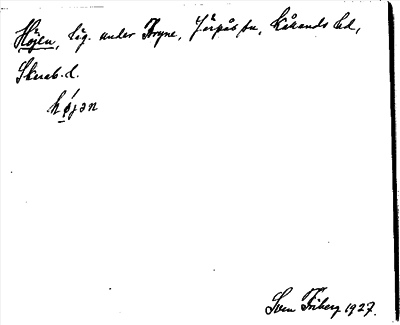 Höjen, läg. under Bryne, Järpås sn, Kålands hd,
Skarab. l.
højən
Sven Friberg 1927.